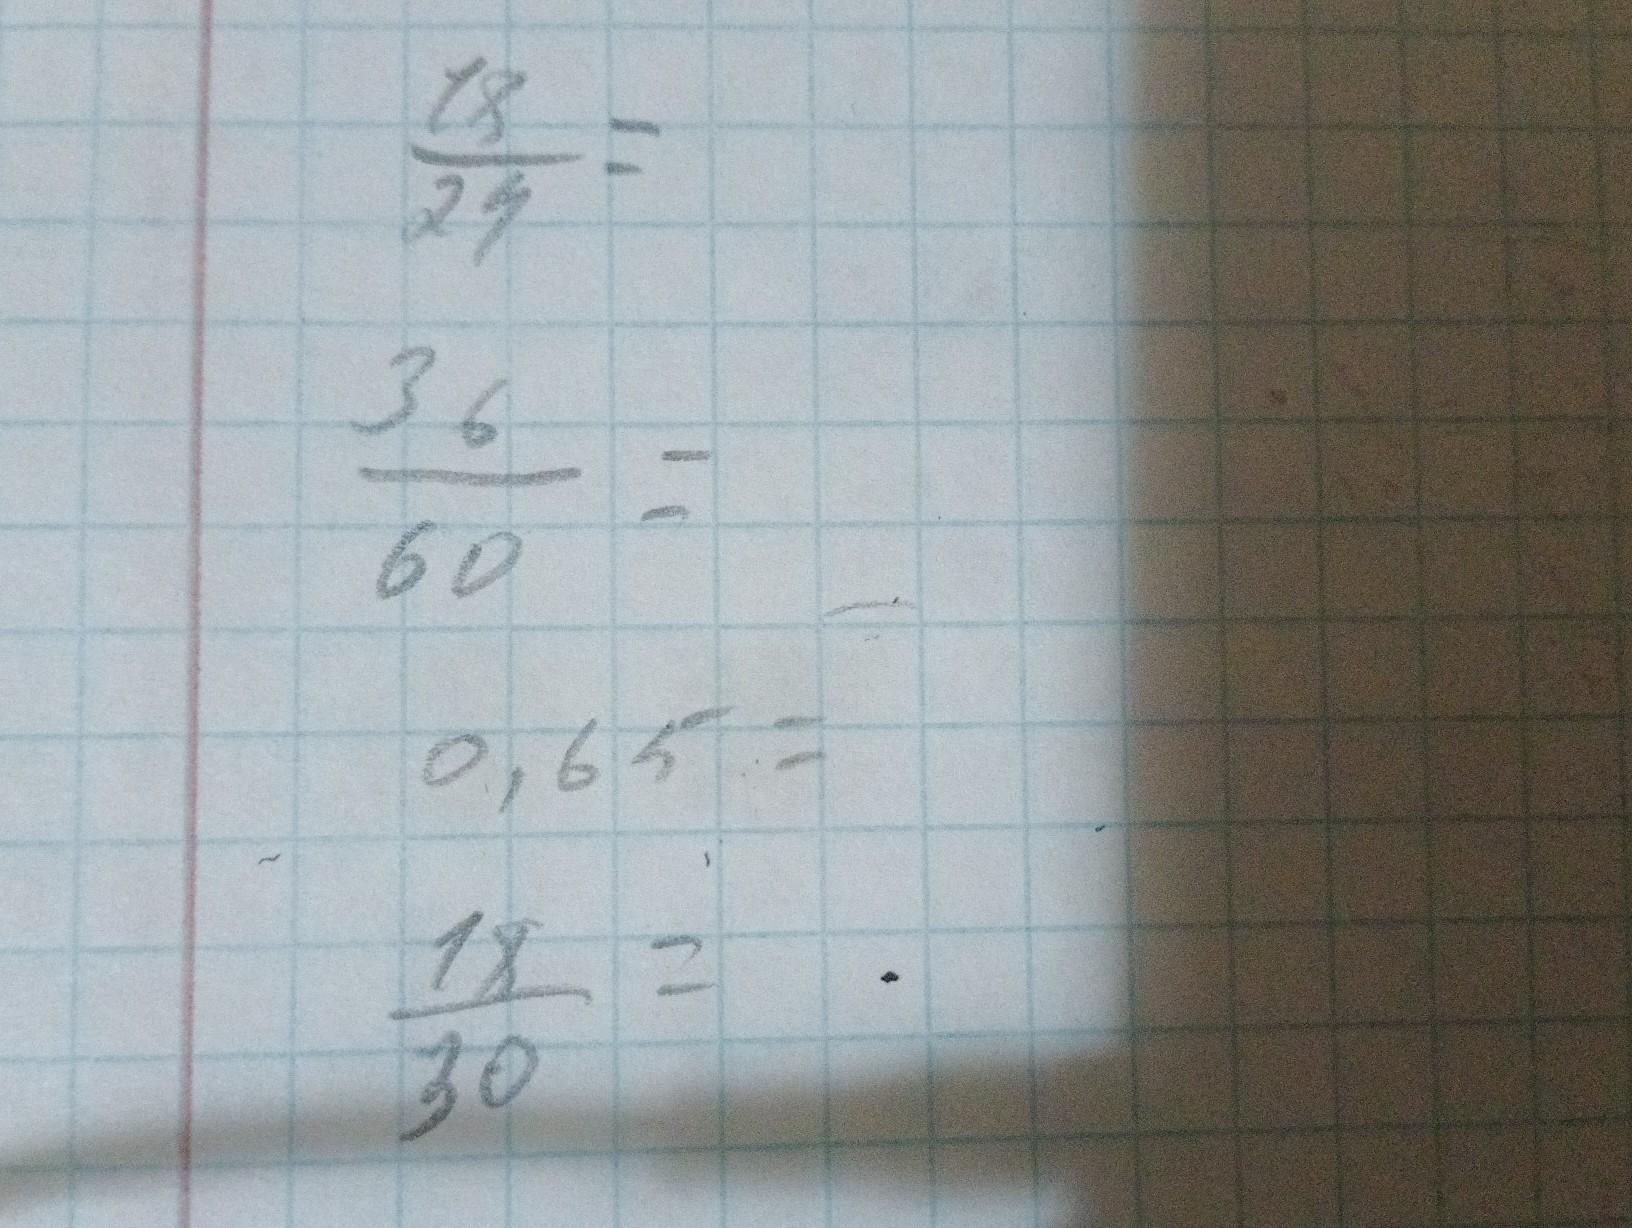 18/24 =
36/60 =
0,65 =
18/30 =